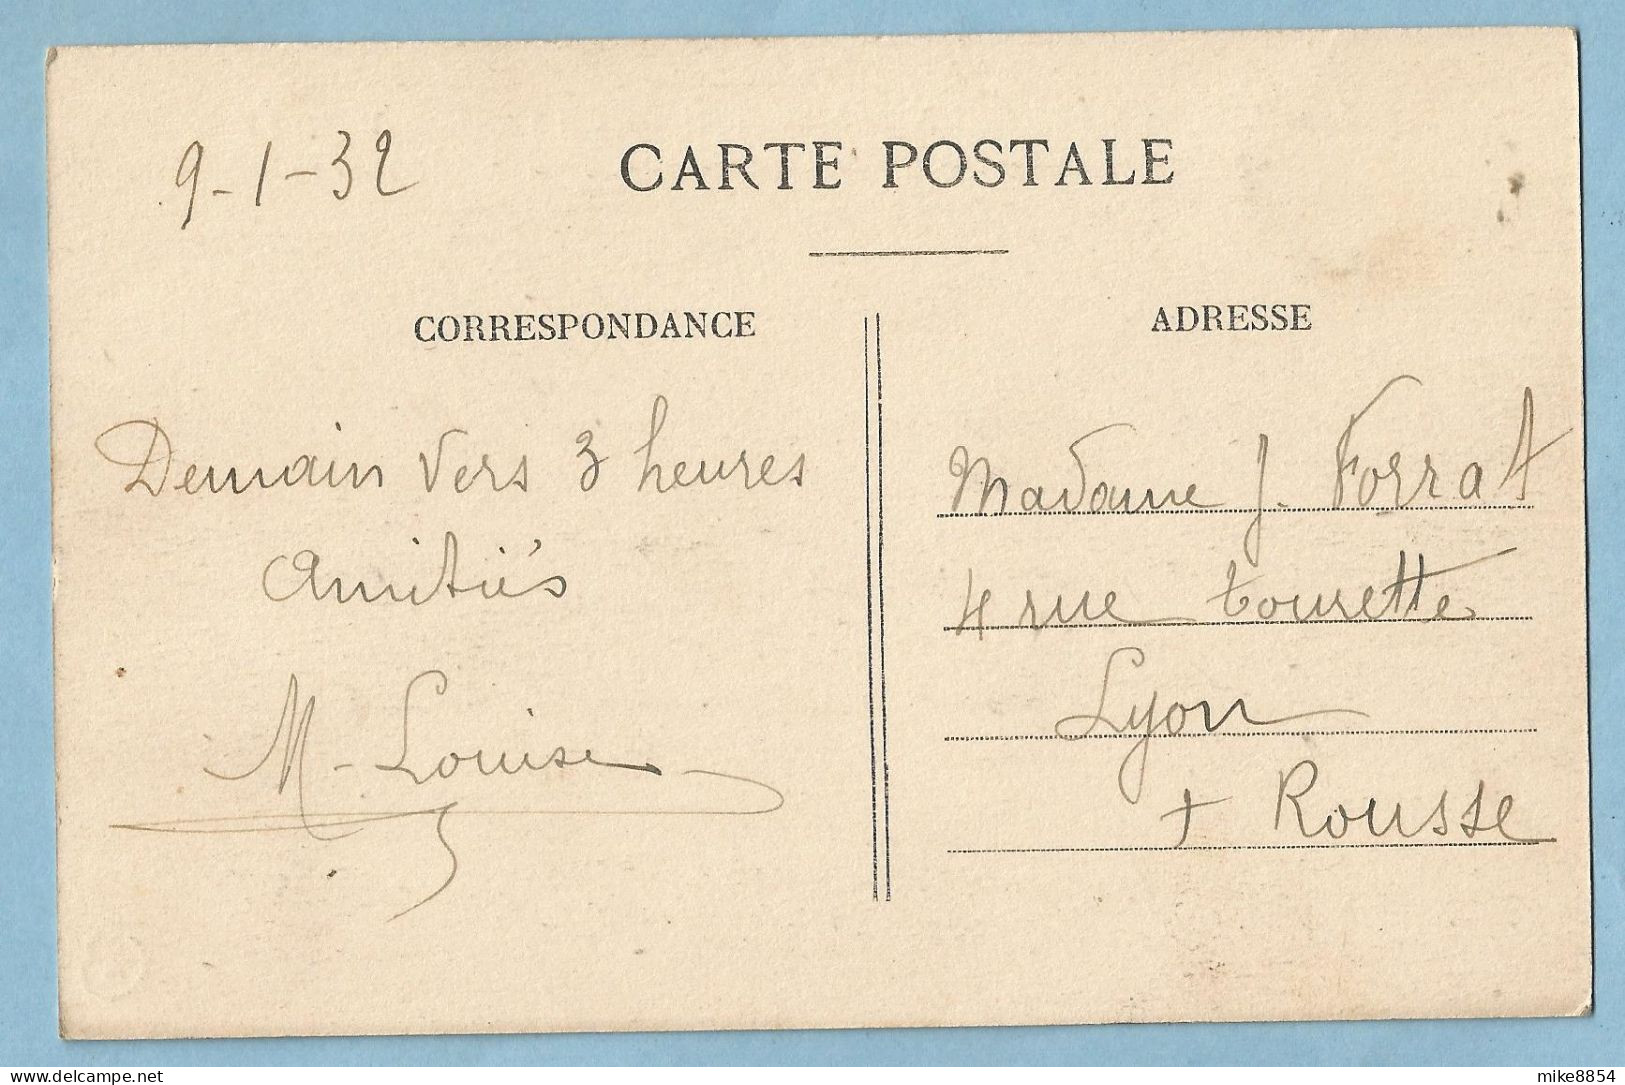 9-1-32
CARTE POSTALE
CORRESPONDANCE
Demain vers 3 heures
Amitiés
M-Louise
ADRESSE
Madame J. Forrat
4 rue tourette
Lyon
+ Rousse
mike8854